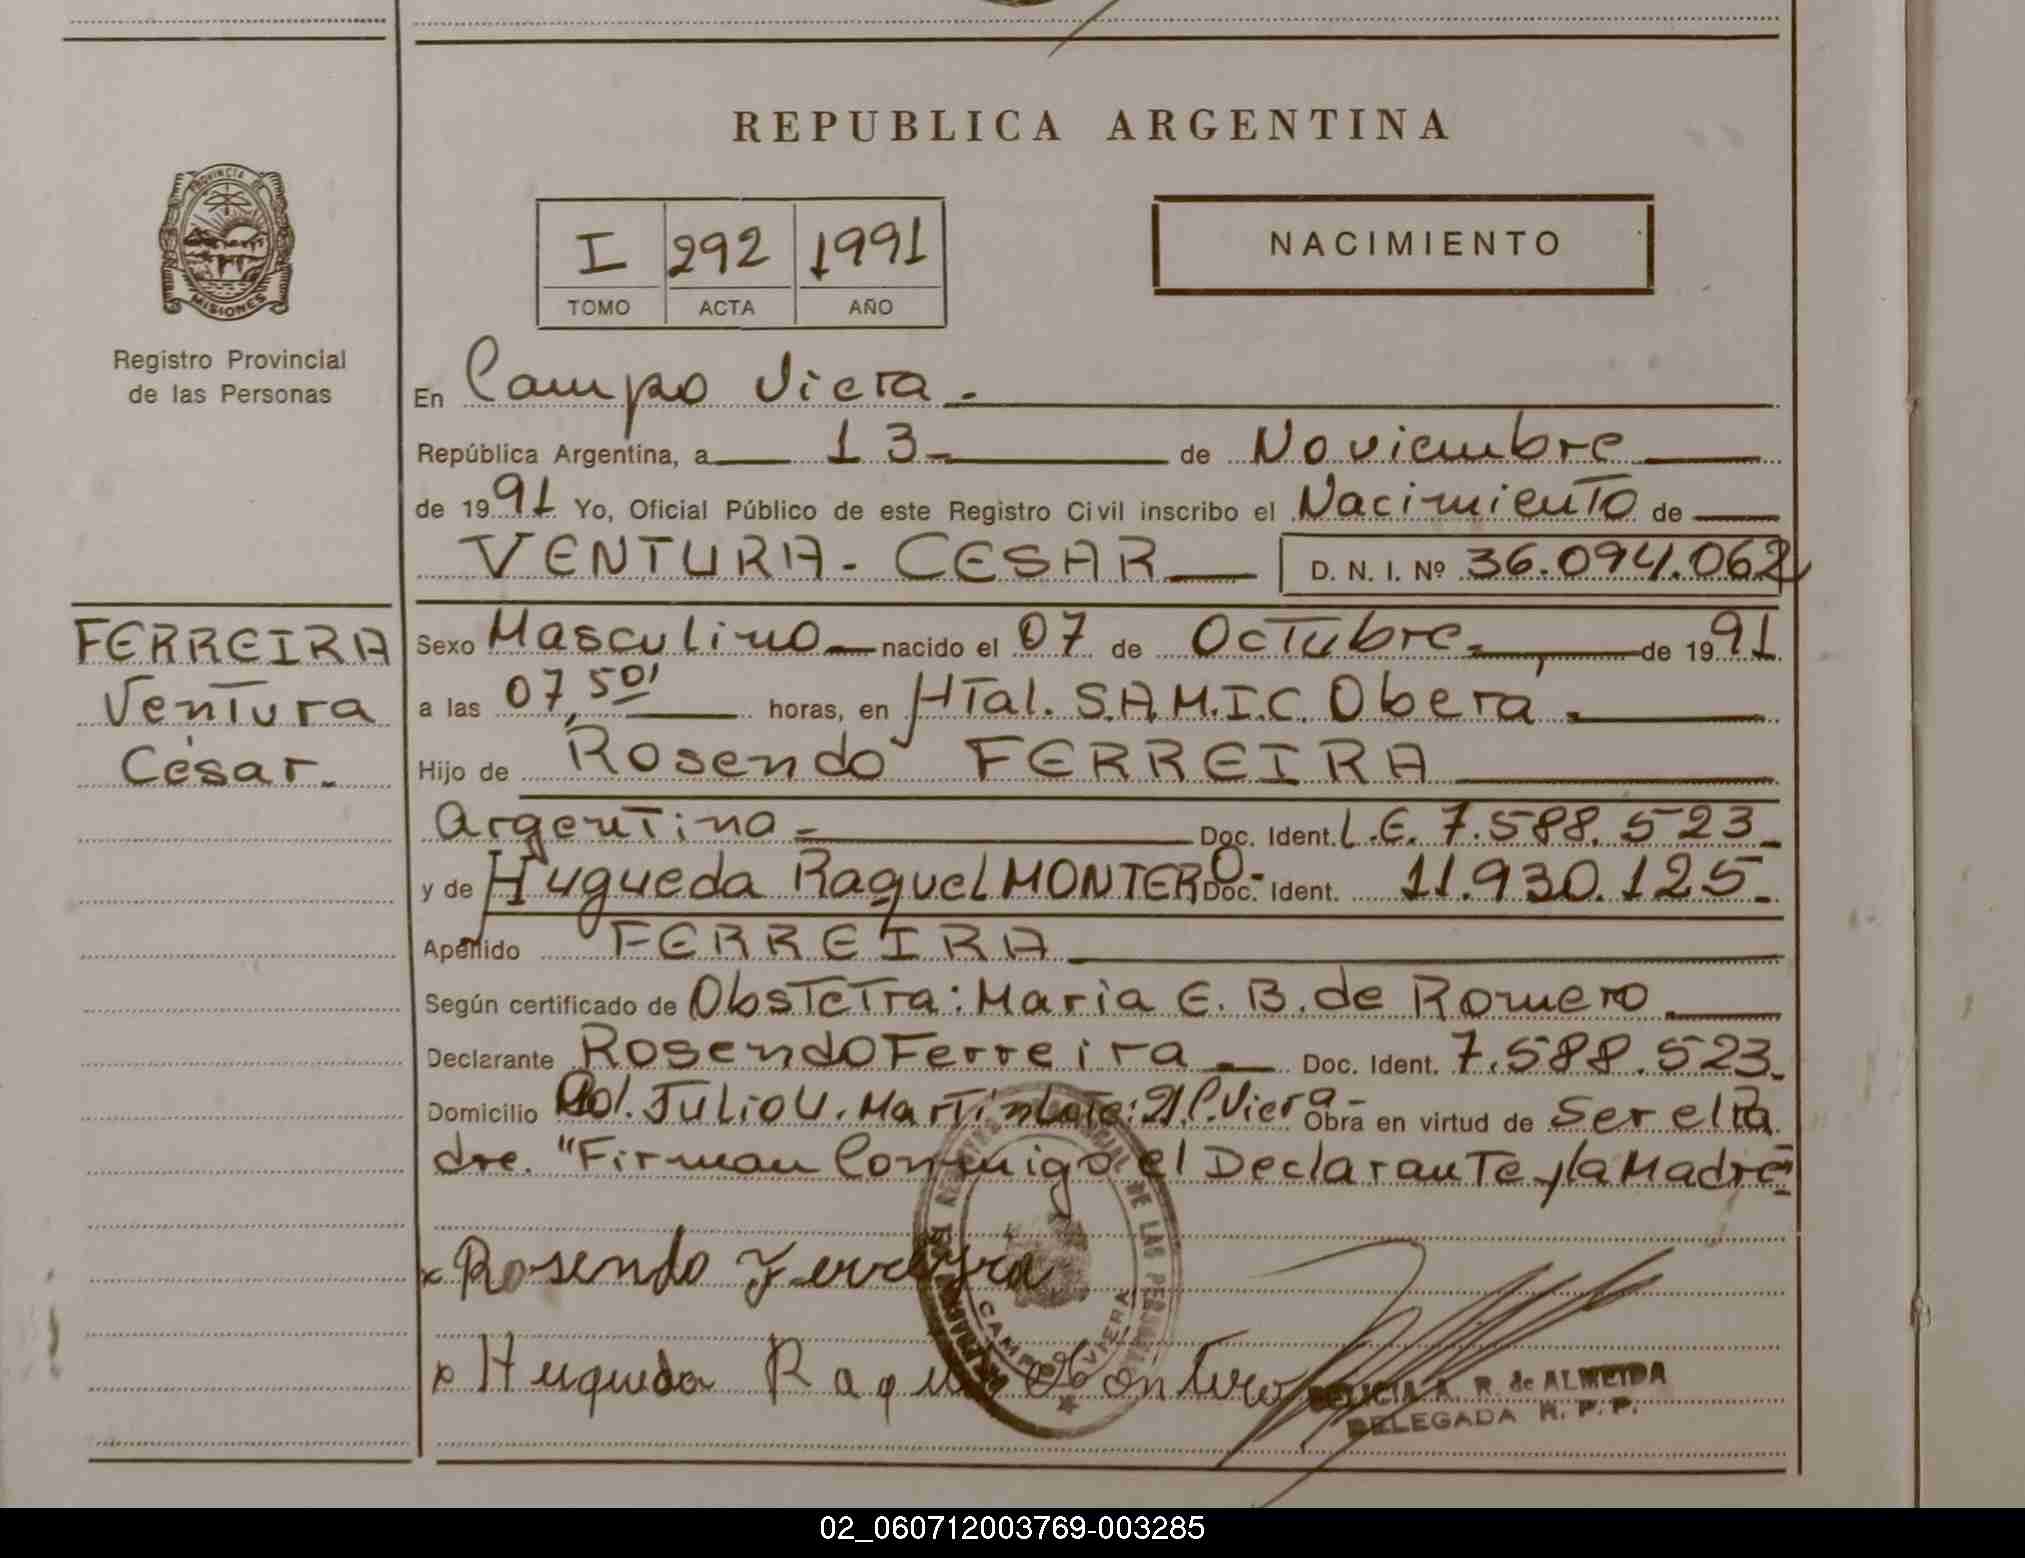 REPUBLICA ARGENTINA
PROVINCIA DE MISIONES
Registro Provincial
de las Personas
I 292 1991
TOMO ACTA AÑO
NACIMIENTO
En Campo Viera.-
República Argentina, a 13 de Noviembre
de 1991 Yo, Oficial Público de este Registro Civil inscribo el Nacimiento de
VENTURA - CESAR D. N. I. Nº 36.094.062
FERREIRA
Ventura
César.
Sexo Masculino nacido el 07 de Octubre de 1991
a las 07,50' horas, en Htal. S.A.M.I.C. Obera
Hijo de Rosendo FERREIRA
Argentino Doc. Ident. L.E. 7.588.523
y de Hugueda Raquel MONTERO.- Doc. Ident. 11.930.125
Apellido FERREIRA
Según certificado de Obstetra: Maria E. B. de Romero
Declarante Rosendo Ferreira Doc. Ident. 7.588.523
Domicilio Col. Julio U. Martin Lote: 21 C. Viera - Obra en virtud de Ser el Pa
dre. "Firman Conmigo el Declarante y la Madre"
x Rosendo Ferreyra
x Hugueda Raquel Montero
DE LAS PERSONAS
CAMPO VIERA
FELICIA A. R. de ALMEIDA
DELEGADA R. P. P.
02_060712003769-003285